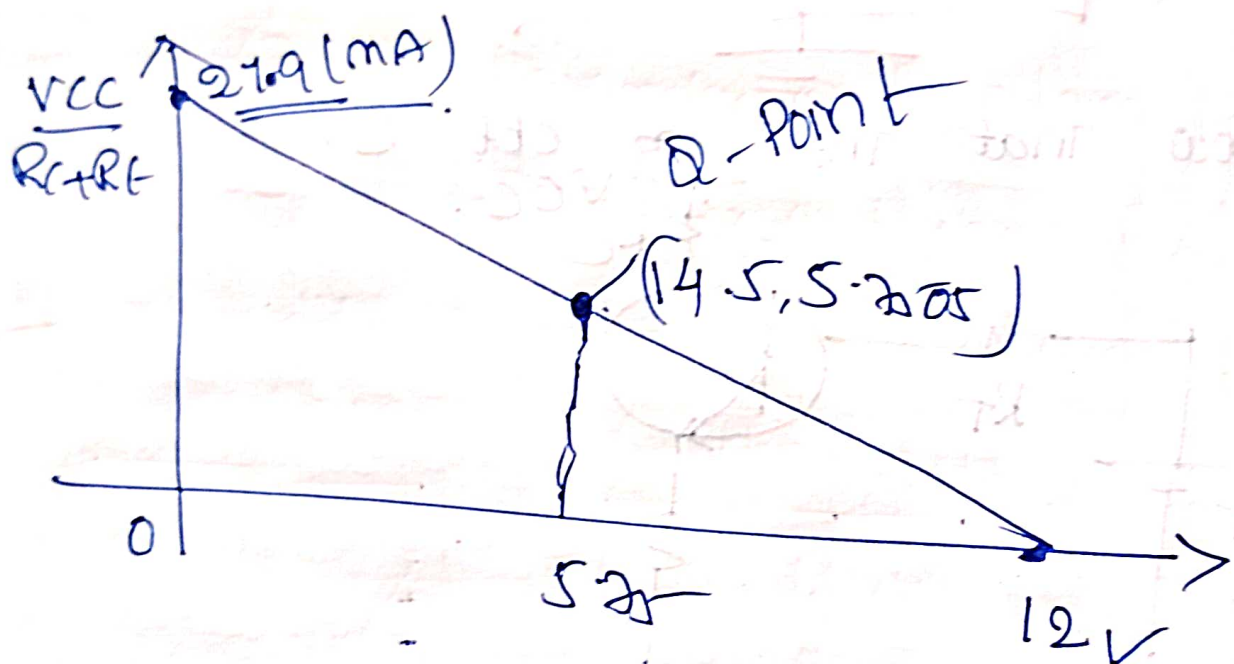 VCC
RC+RE
27.9 (mA)
Q-Point
(14.5, 5.7505)
0
5.75
12 V